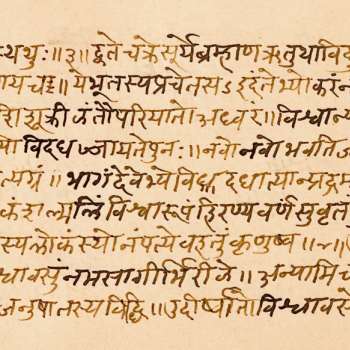 स्थथुः ॥३॥ द्वे ते चक्रे सूर्ये ब्रह्माण ऋतुथा विदु
याय च । ये भूतस्य प्रचेतस इदं तेभ्यो करं न
शिशू क्रीळंतौ परि यातो अध्वरं ॥ विश्वान्य
या विदधज्जायते पुनः । नवो नवो भवति ज
त्यग्रं ॥ भागं देवेभ्यो वि दधात्यान्प्र
कं शल्मलिं विश्वरूपं हिरण्यवर्णं सुवृत
स्य लोकं स्योनं पत्ये वहतुं कृणुष्व ॥
श्वावसुं नमसा गीर्भिरीळे ॥ अन्यामि
जनुषा तस्य विद्धि ॥ उदीर्ष्वातो विश्वावसो